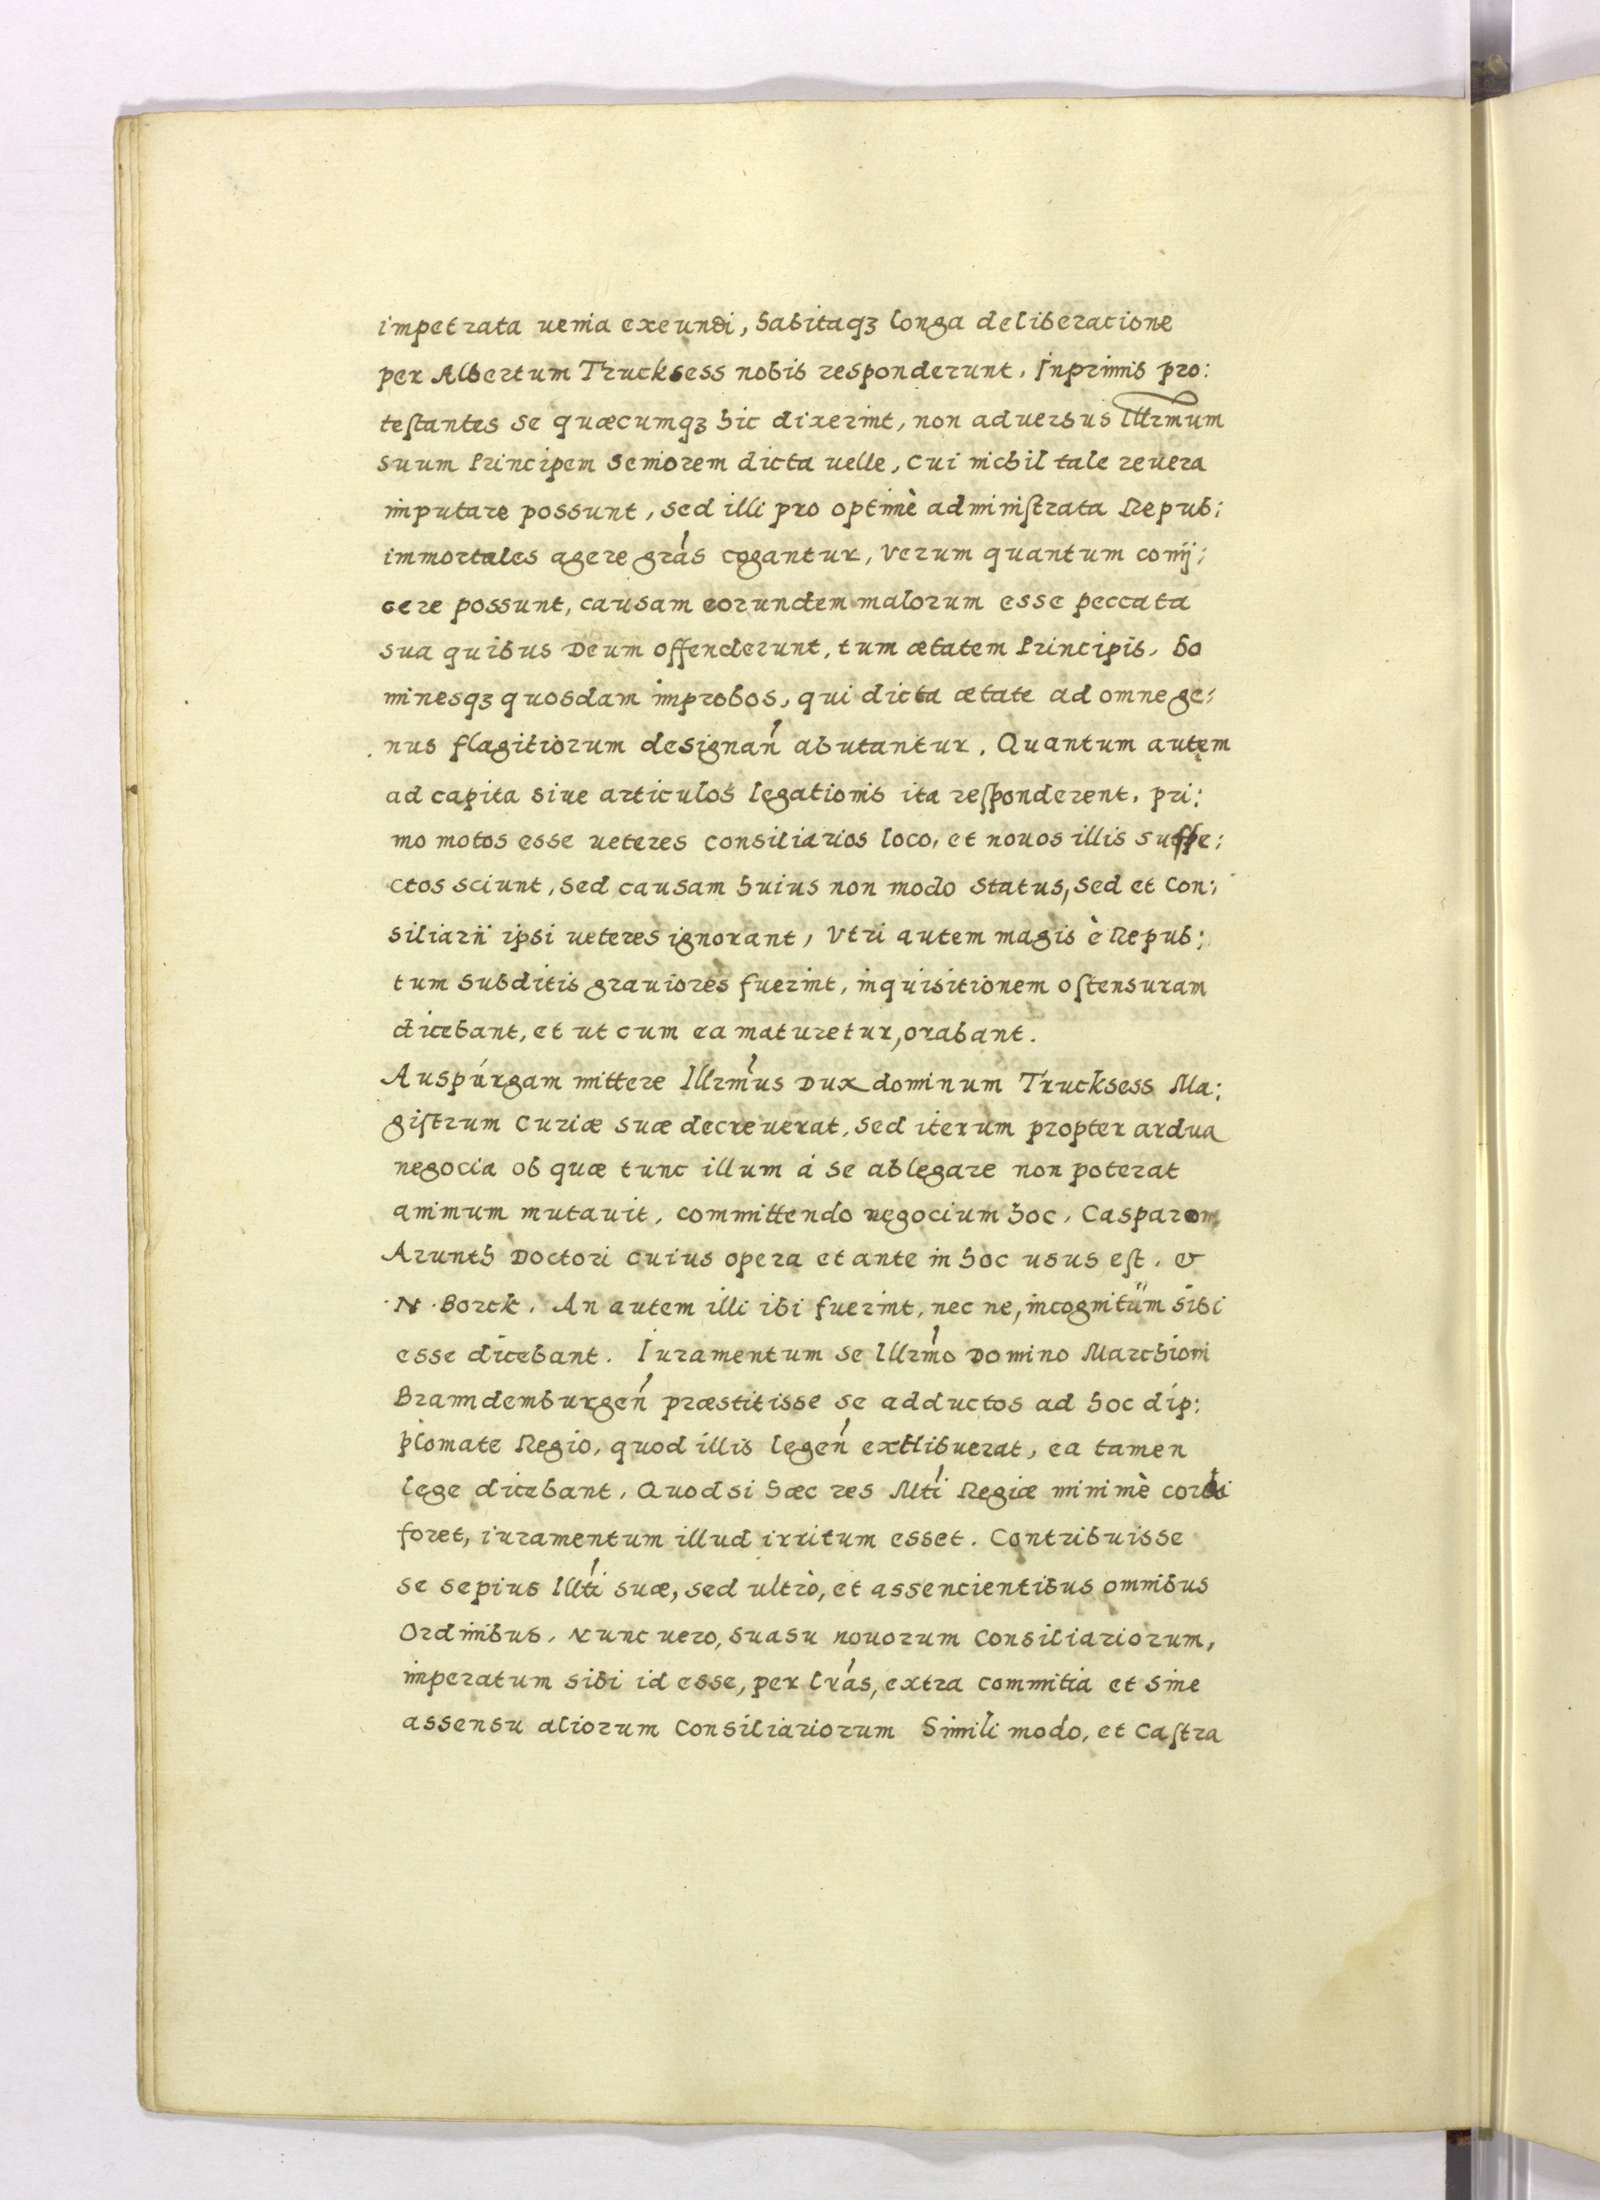 impetrata uenia exeundi, habitaqꝫ longa deliberacione
per Albertum Trucksess nobis responderunt. Inprimis pro:
teſtantes se quæcumqꝫ hic dixerint, non aduersus Illrmum
suum Principem Seniorem dicta uelle, cui nichil tale reuera
imputare possunt, sed illi pro optimè adminiſtrata Repub:
immortales agere grãs cogantur, Verum quantum conij:
cere possunt, causam eorundem malorum esse peccata
sua quibus Deum offenderunt, tum ætatem Principis, ho
minesqꝫ quosdam improbos, qui dicta ætate ad omne ge:
nus flagitiorum designañ abutantur. Quantum autem
ad capita siue articulos legationis ita reſponderent. pri:
mo motos esse ueteres consiliarios loco, et nouos illis suffe:
ctos sciunt, sed causam huius non modo status, sed et Con:
siliarii ipsi ueteres ignorant, Vtri autem magis è Repub:
tum subditis grauiores fuerint, inquisitionem oſtensuram
dicebant, et ut cum ea maturetur, orabant.
Auspúrgam mittere Illrm̃us Dux dominum Trucksess Ma:
giſtrum Curiæ suæ decreuerat, sed iterum propter ardua
negocia ob quæ tunc illum á se ablegare non poterat
animum mutauit, committendo negocium hoc, Casparom
Arunth Doctori cuius opera et ante in hoc usus eſt. &
N. Borck. An autem illi ibi fuerint, nec ne, incognitüm sibi
esse dicebant. Iuramentum se Illrm̃o Domino Marchioni
Branndemburgeñ præstitisse se adductos ad hoc dip:
plomate Regio, quod illis legeñ exhibuerat, ea tamen
lege dicebant, Quod si hæc res Mti Regiæ minimè cordi
foret, iuramentum illud irritum esset. Contribuisse
se sepius Illti suæ, sed ultrò, et assencientibus omnibus
Ordinibus. Nunc uero, suasu nouorum Consiliariorum,
imperatum sibi id esse, per lrãs, extra commitia et sine
assensu aliorum Consiliariorum Simili modo, et Caſtra